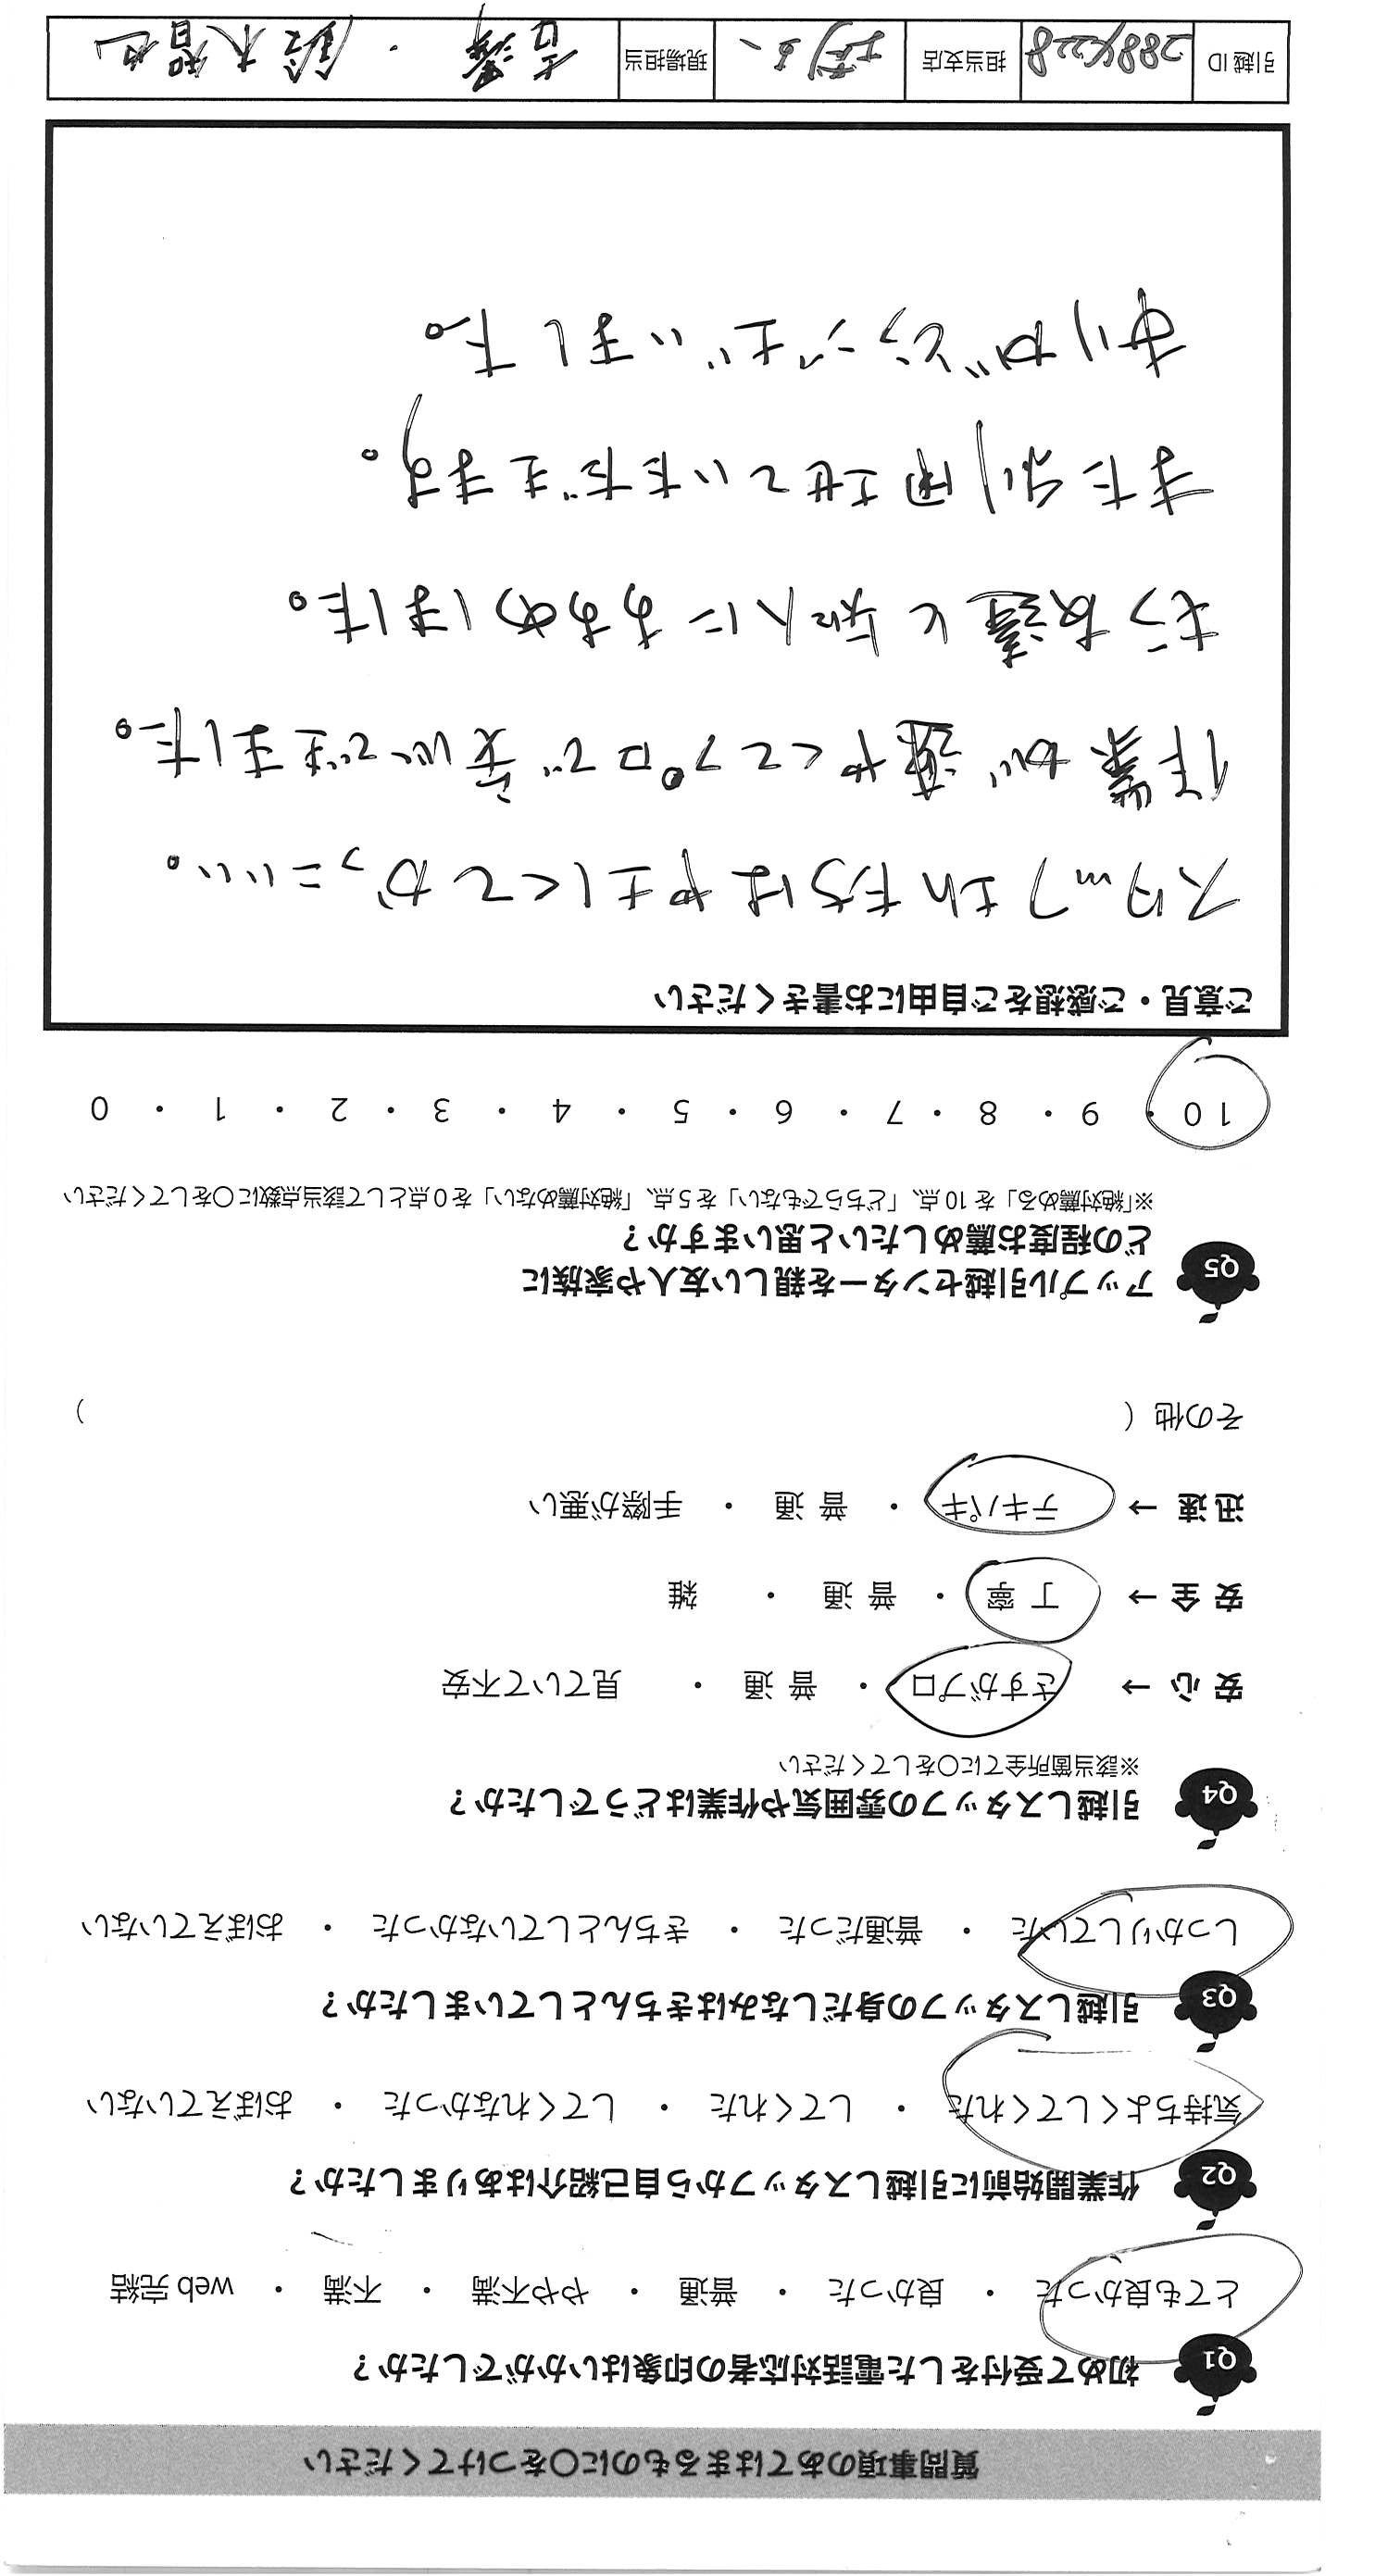 質問事項のあてはまるものに○をつけてください
Q1 初めて受付をした電話対応者の印象はいかがでしたか？
とても良かった ・ 良かった ・ 普通 ・ やや不満 ・ 不満 ・ web完結
Q2 作業開始前に引越しスタッフから自己紹介はありましたか？
気持ちよくしてくれた ・ してくれた ・ してくれなかった ・ おぼえていない
Q3 引越しスタッフの身だしなみはきちんとしていましたか？
しっかりしていた ・ 普通だった ・ きちんとしていなかった ・ おぼえていない
Q4 引越しスタッフの雰囲気や作業はどうでしたか？
※該当箇所全てに○をしてください
安心 → さすがプロ ・ 普通 ・ 見ていて不安
安全 → 丁寧 ・ 普通 ・ 雑
迅速 → テキパキ ・ 普通 ・ 手際が悪い
その他（ ）
Q5 アップル引越センターを親しい友人や家族に
どの程度お薦めしたいと思いますか？
※「絶対薦める」を10点、「どちらでもない」を5点、「絶対薦めない」を0点として該当点数に○をしてください
10 ・ 9 ・ 8 ・ 7 ・ 6 ・ 5 ・ 4 ・ 3 ・ 2 ・ 1 ・ 0
ご意見・ご感想をご自由にお書きください
スタッフさんたちはやさしくてかっこいい。
作業が速やくてプロで安心できました。
もう友達と知人にすすめました。
また利用させていただきます。
ありがとうございました。
引越ID 担当支店 埼玉 現場担当 吉澤 ・ 鈴木智也